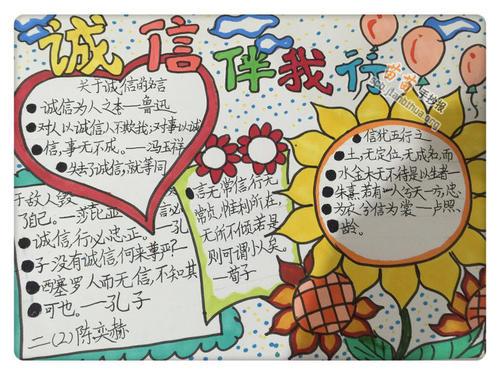 诚信伴我行
关于诚信的名言
诚信为人之本—鲁迅
对人以诚信人不欺我;对事以诚
信,事无不成。—冯玉祥
失去了诚信,就等同
于敌人毁
了自己。—莎
诚信,行必忠正。—孔
子 没有诚信,何来尊严?
西塞罗 人而无信,不知其
可也。—孔子
二(2)陈奕赫
言无常信,行无
常贞,惟利所在,
无所不倾,若是
则可谓小人矣。
荀子
信犹五行之
土,无定位,无成名,而
水金木无不待是以生者—
朱熹 若有人兮天一方,忠
为衣兮信为裳—卢照
龄。